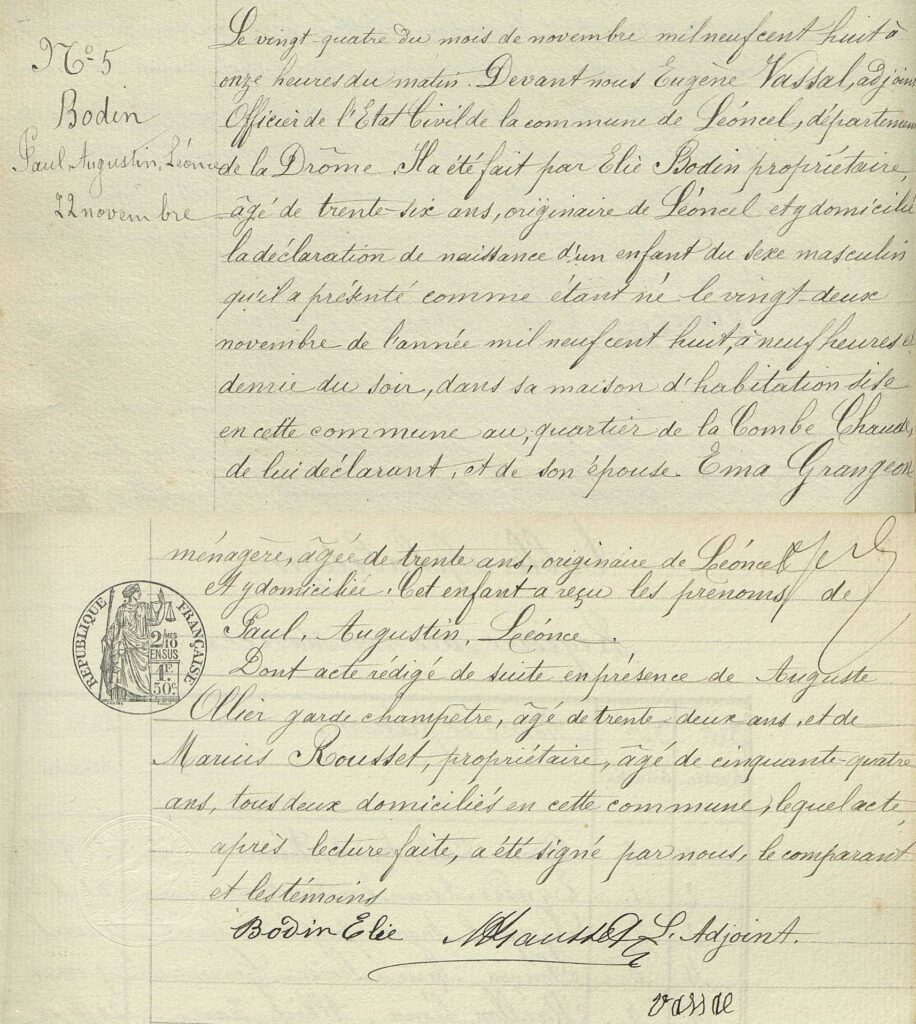 N° 5
Bodin
Paul, Augustin, Léonce
22 novembre
Le vingt-quatre du mois de novembre mil neuf cent huit à
onze heures du matin. Devant nous Eugène Vassal, adjoint
Officier de l'Etat Civil de la commune de Léoncel, département
de la Drôme. Il a été fait par Elie Bodin propriétaire,
âgé de trente-six ans, originaire de Léoncel et y domicilié
la déclaration de naissance d'un enfant du sexe masculin
qu'il a présenté comme étant né le vingt-deux
novembre de l'année mil neuf cent huit, à neuf heures et
demie du soir, dans sa maison d'habitation sise
en cette commune au, quartier de la Combe Chaude,
de lui déclarant, et de son épouse Ema Grangeon
ménagère, âgée de trente ans, originaire de Léoncel
et y domiciliée. Cet enfant a reçu les prénoms de
Paul, Augustin, Léonce.
Dont acte rédigé de suite en présence de Auguste
Ollier garde champêtre, âgé de trente-deux ans, et de
Marius Rousset, propriétaire, âgé de cinquante-quatre
ans, tous deux domiciliés en cette commune, lequel acte,
après lecture faite, a été signé par nous, le comparant
et les témoins
Bodin Elie L. Adjoint.
Vassal
RÉPUBLIQUE FRANÇAISE
2/10
EN SUS
1F.
50c